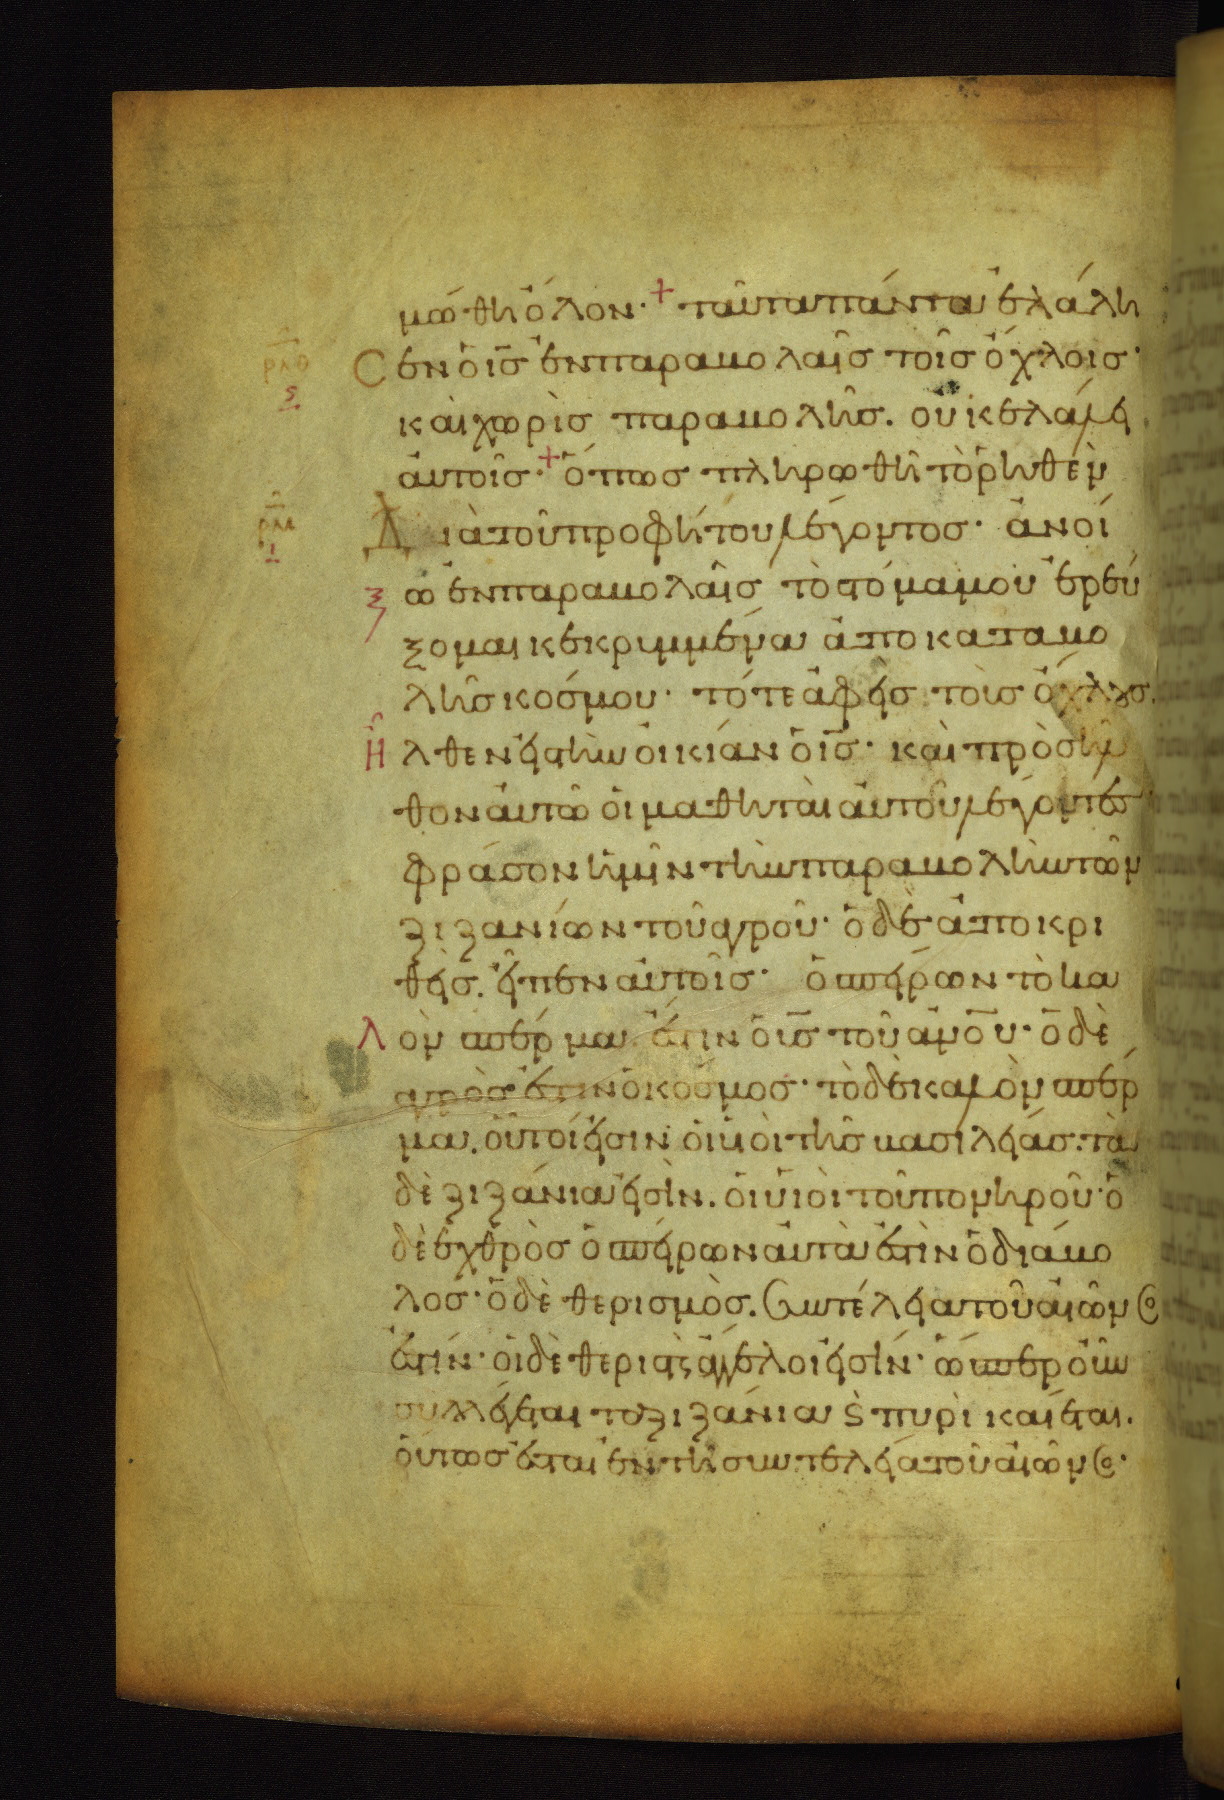 μώθη ὅλον· + ταῦτα πάντα ἐλάλη
ρλθ
ς
Cεν ὁ ις̅ ἐν παραβολαῖς τοῖς ὄχλοις·
καὶ χωρὶς παραβολῆς. οὐκ ἐλάλει
αὐτοῖς· + ὅπως πληρωθῆ τὸ ῥηθὲν
ρλε
Διὰ τοῦ προφήτου λέγοντος· ἀνοί
ξω ἐν παραβολαῖς τὸ στόμα μου ἐρεύ
ξομαι κεκριμμένα ἀπὸ καταβο
λῆς κόσμου· τότε ἀφεὶς τοὺς ὄχλους.
Ἦλθεν εἰς τὴν οἰκίαν ὁ ις̅· καὶ προσῆλ
θον αὐτῶ οἱ μαθηταὶ αὐτοῦ λέγοντες
φράσον ἡμῖν τὴν παραβολὴν τῶν
ζιζανίων τοῦ ἀγροῦ· ὁ δὲ ἀποκρι
θεὶς. εἶπεν αὐτοῖς· ὁ σπείρων τὸ κα
Λὸν σπέρμα ἐστιν ὁ υς̅ τοῦ ἀνο̅υ· ὁ δὲ
ἀγρὸς ἐστιν ὁ κόσμος· τὸ δὲ καλὸν σπέρ
μα. οὗτοί εἰσιν οἱ υἱοὶ τῆς βασιλείας. τὰ
δὲ ζιζάνια εἰσὶν. οἱ υἱοὶ τοῦ πονηροῦ· ὁ
δὲ ἐχθρὸς ὁ σπείρων αὐτὰ ἐστὶν ὁ διάβο
λος· ὁ δὲ θερισμὸς. Συντέλεια τοῦ αἰῶνος
ἐστίν· οἱ δὲ θερισταὶ ἄγγελοι εἰσίν· ὥσπερ οὖν
συλλέγεται τὰ ζιζάνια ϛ̀ πυρὶ καίεται.
οὕτως ἔσται ἐν τῆ συντελεία τοῦ αἰῶνος·